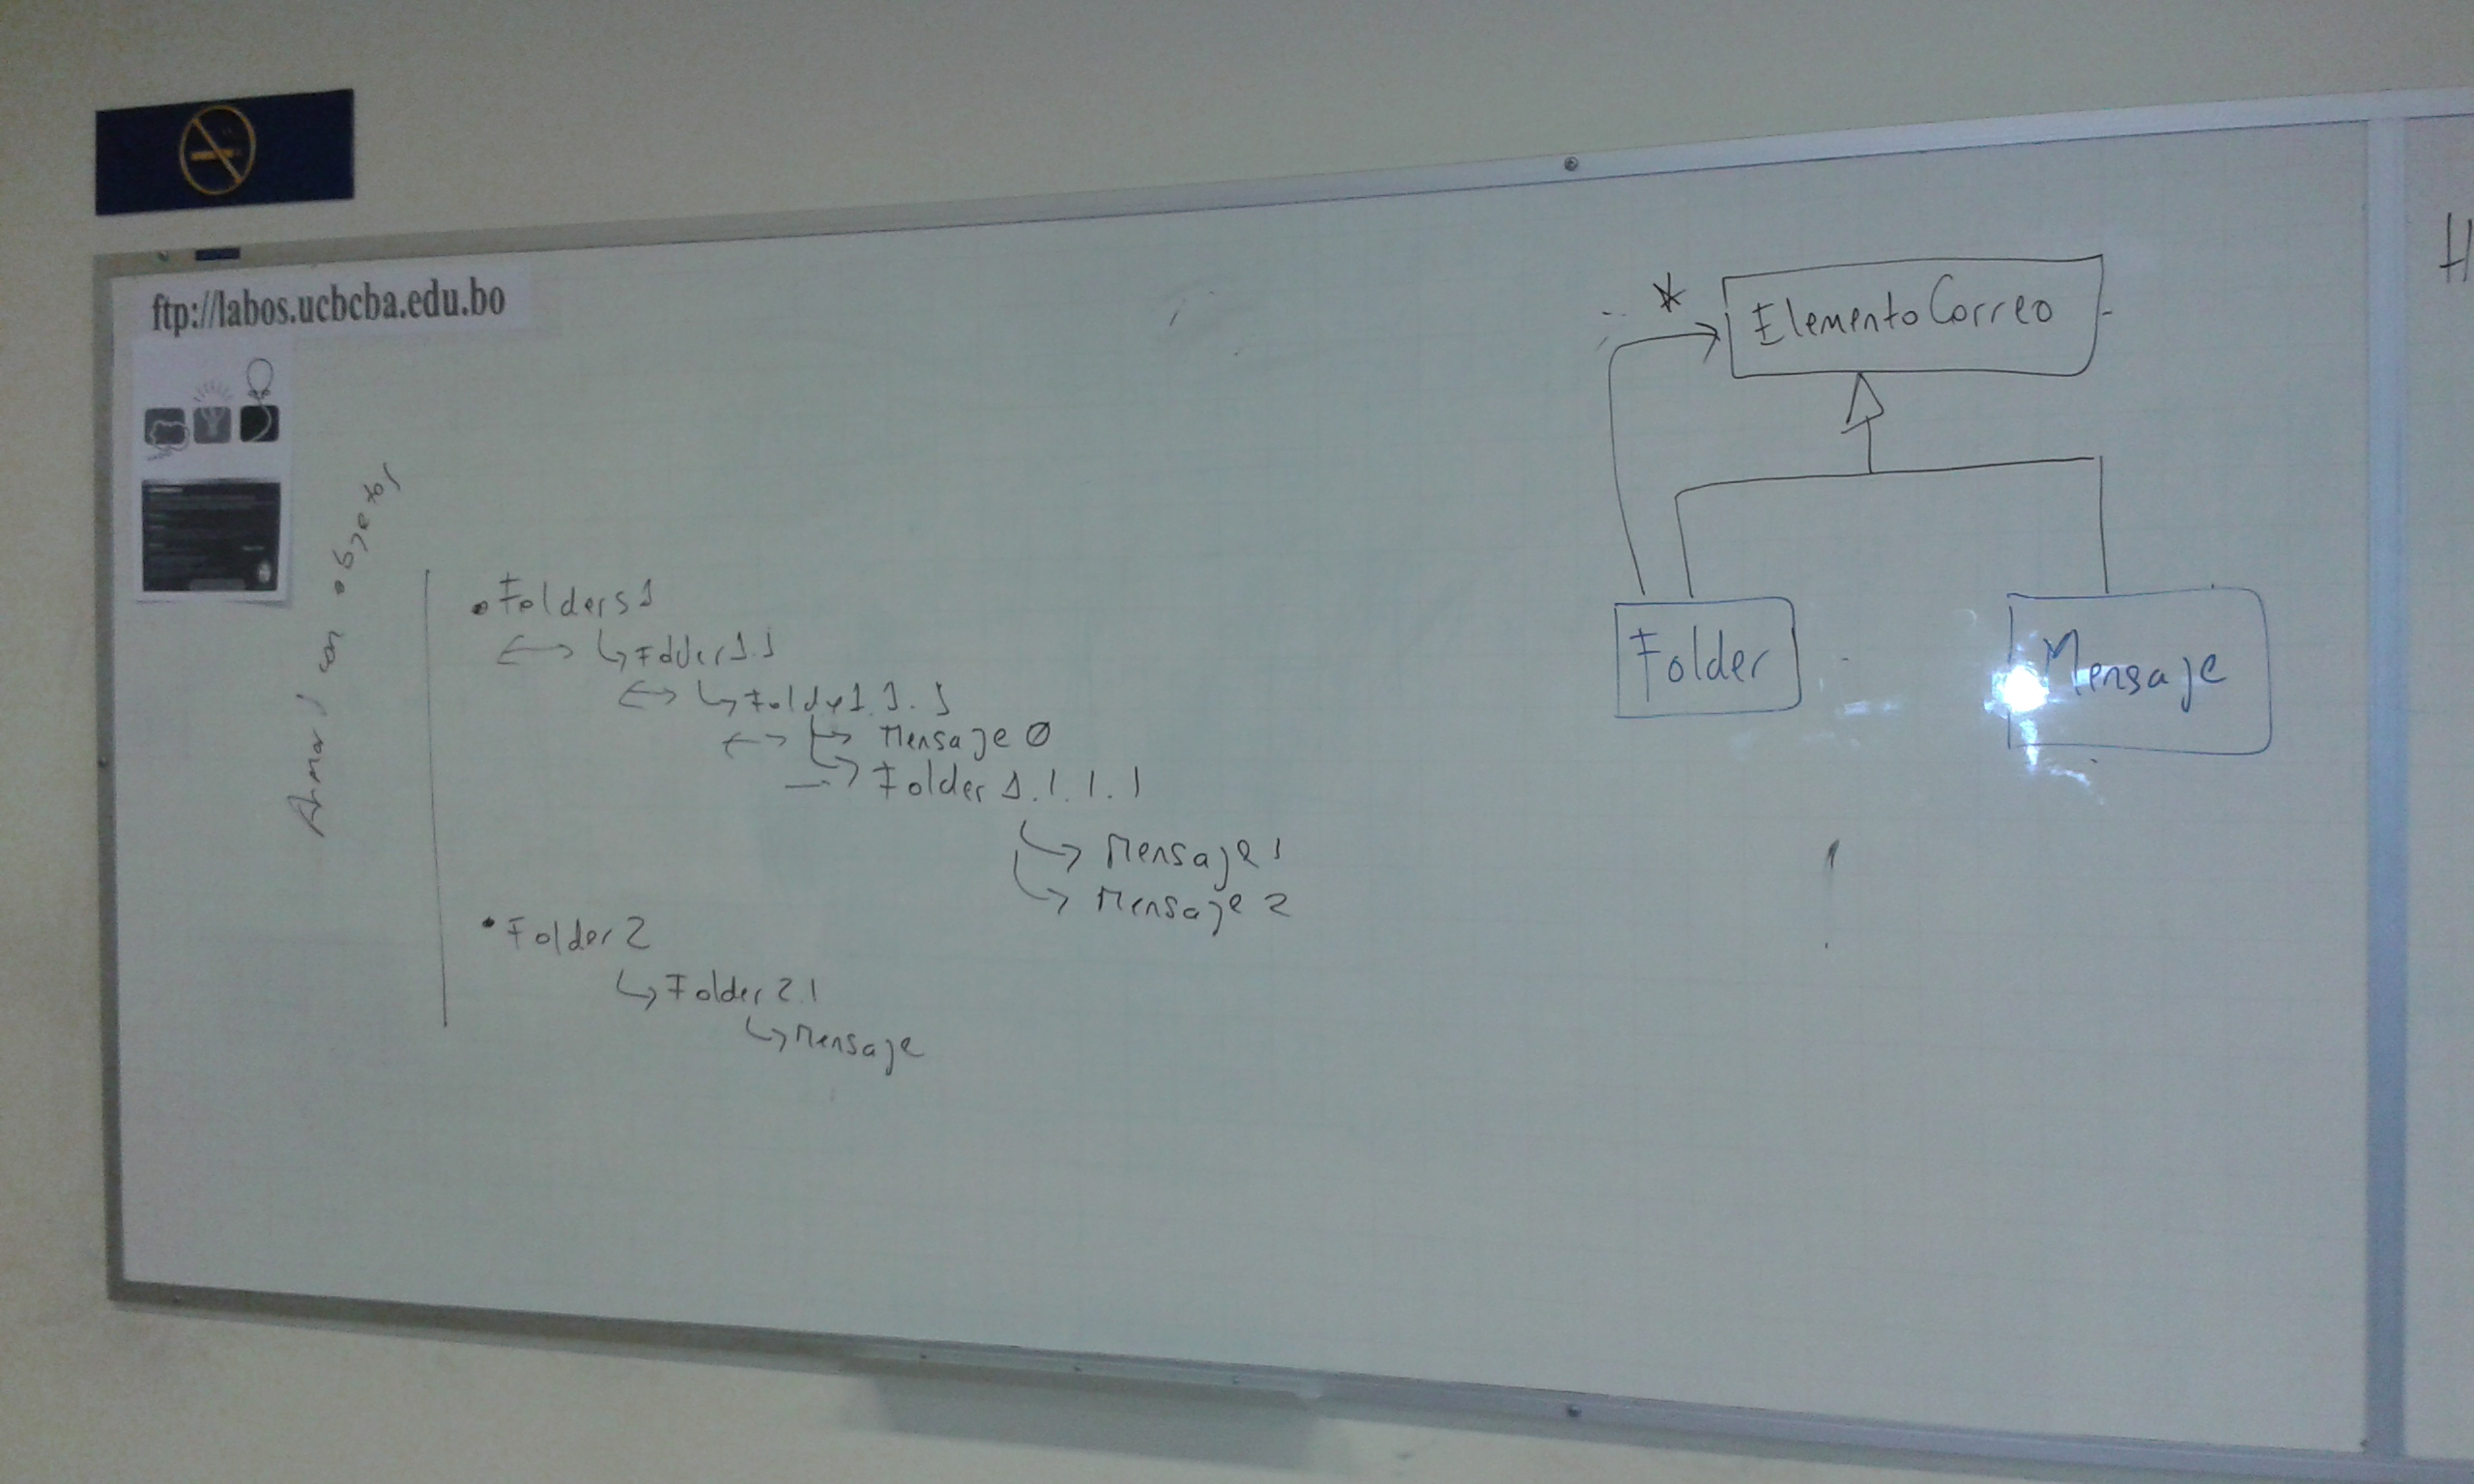 ftp://labos.ucbcba.edu.bo
Armar con objetos
• Folders1
↳ Folder1.1
↳ Folder1.1.1
↳ Mensaje 0
↳ Folder 1.1.1.1
↳ Mensaje 1
↳ Mensaje 2
• Folder2
↳ Folder 2.1
↳ Mensaje
*
ElementoCorreo
Folder
Mensaje
H